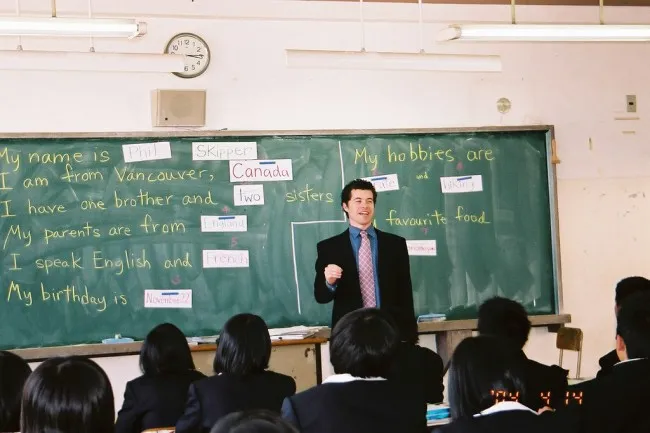 My name is Phil Skipper
I am from Vancouver, Canada
I have one brother and two sisters
My parents are from
I speak English and French
My birthday is
My hobbies are
and hiking
favourite food
'04 4 14